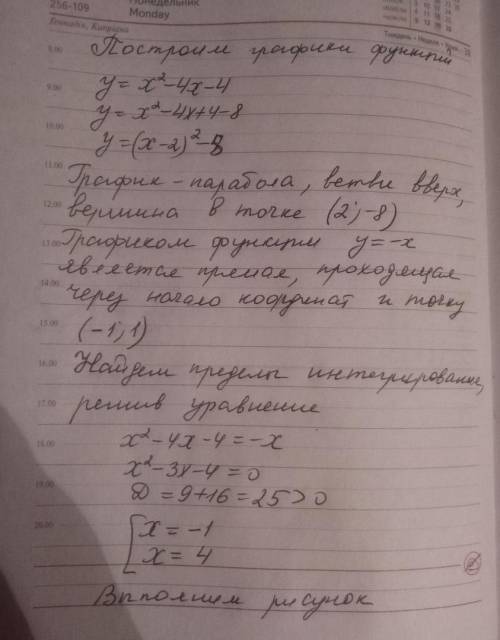 256-109
Понедельник
Monday
Геннадій, Капріна
Тиждень • Неделя • Week
8.00
Построим графики функций
9.00
y = x² - 4x - 4
y = x² - 4x + 4 - 8
10.00
y = (x - 2)² - 8
11.00
График - парабола, ветви вверх,
12.00
вершина в точке (2; -8)
13.00
Графиком функции y = -x
является прямая, проходящая
14.00
через начало координат и точку
15.00
(-1; 1)
16.00
Найдем пределы интегрирования,
17.00
решив уравнение
18.00
x² - 4x - 4 = -x
x² - 3x - 4 = 0
19.00
D = 9 + 16 = 25 > 0
20.00
[ x = -1
x = 4
Выполним рисунок